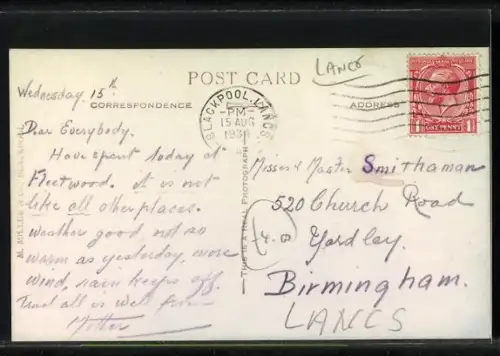 LANCS
POST CARD
CORRESPONDENCE
ADDRESS
BLACKPOOL. LANCS
PM
15 AUG
ONE PENNY
Wednesday 15th
Dear Everybody.
Have spent today at
Fleetwood. it is not
like all other places.
Weather good, not so
warm as yesterday, more
wind, rain keeps off.
Trust all is well from
Mother
THIS IS A REAL PHOTOGRAPH
Misses & Master Smithaman
520 Church Road
Yardley.
Birmingham.
LANCS